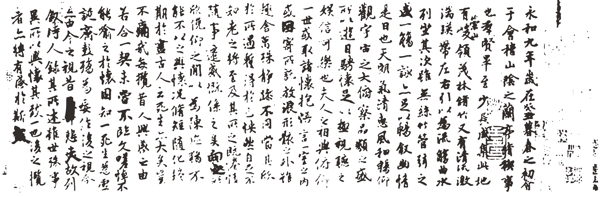 永和九年歲在癸丑暮春之初會
于會稽山陰之蘭亭脩禊事
也群賢畢至少長咸集此地
有崇山峻領茂林脩竹又有清流激
湍暎帶左右引以為流觴曲水
列坐其次雖無絲竹管弦之
盛一觴一詠亦足以暢敘幽情
是日也天朗氣清惠風和暢仰
觀宇宙之大俯察品類之盛
所以遊目騁懷足以極視聽之
娛信可樂也夫人之相與俯仰
一世或取諸懷抱悟言一室之內
或因寄所託放浪形骸之外雖
趣舍萬殊靜躁不同當其欣
於所遇暫得於己快然自足不
知老之將至及其所之既惓情
隨事遷感慨係之矣向之所
欣俛仰之閒以為陳跡猶不
能不以之興懷況脩短隨化終
期於盡古人云死生亦大矣豈
不痛哉每攬昔人興感之由
若合一契未嘗不臨文嗟悼不
能喻之於懷固知一死生為虛
誕齊彭殤為妄作後之視今
亦由今之視昔悲夫故列
敘時人錄其所述雖世殊事
異所以興懷其致一也後之攬
者亦將有感於斯